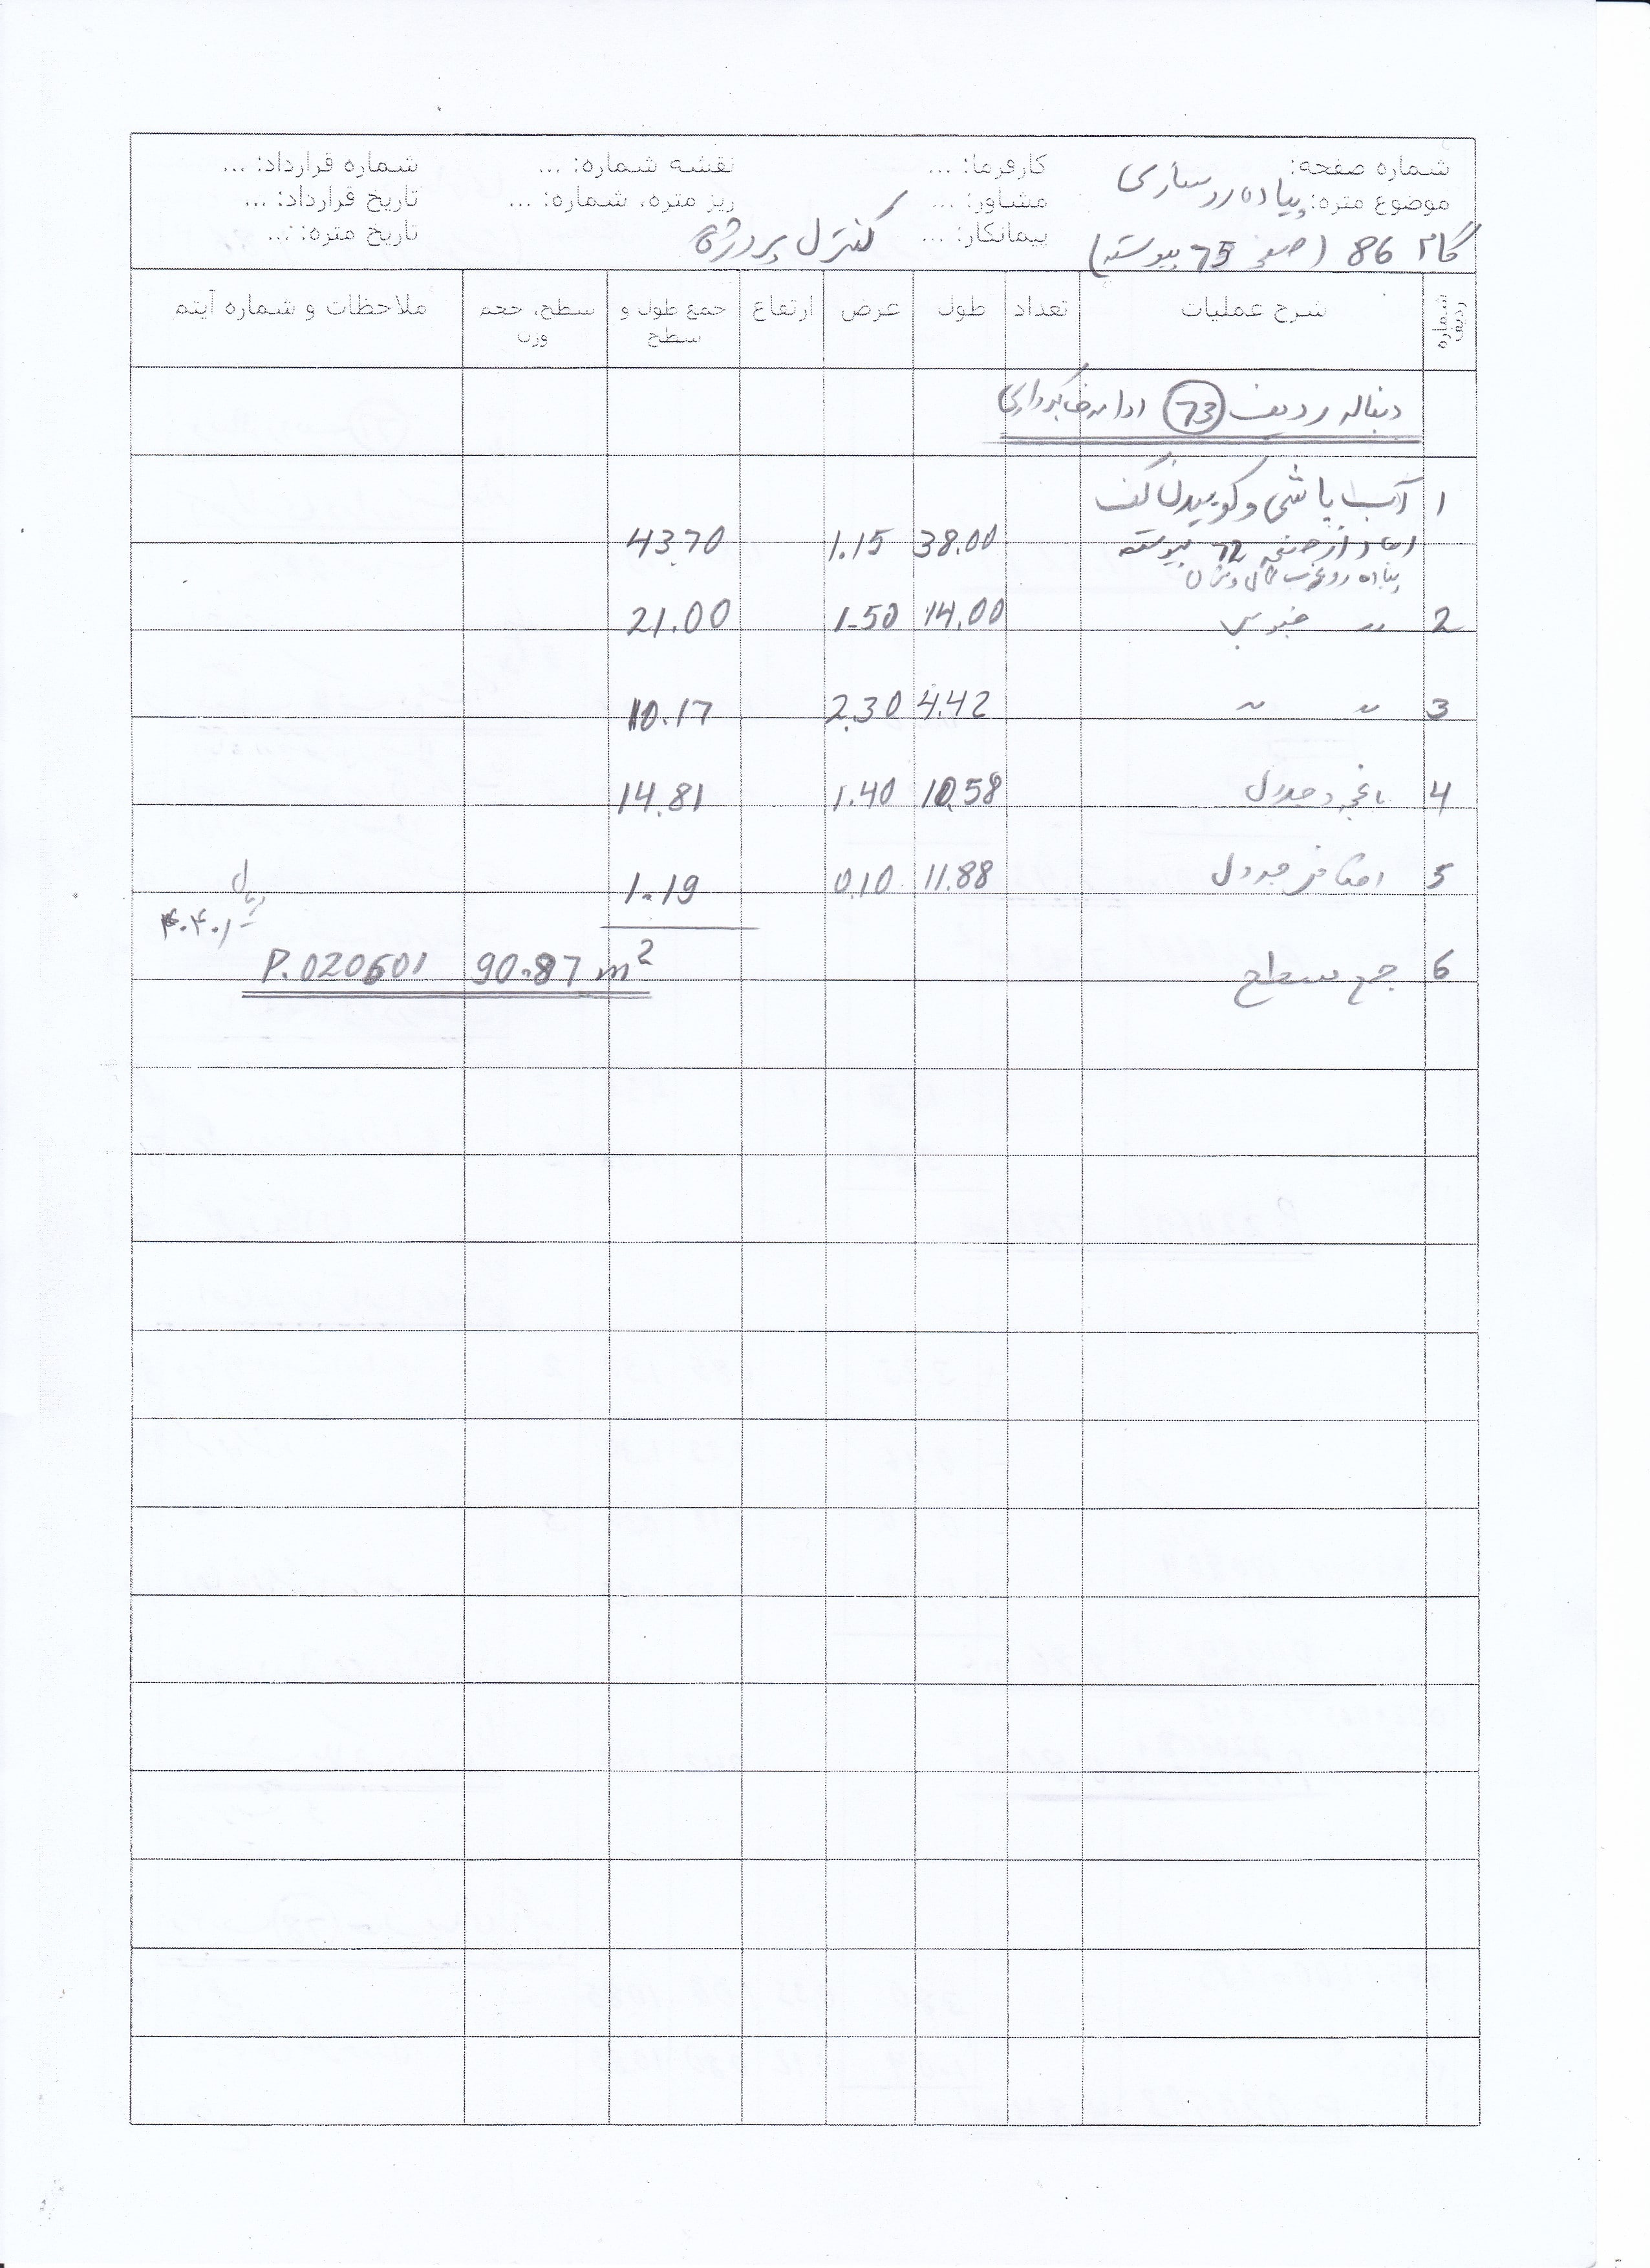 شماره صفحه: کارفرما: ... نقشه شماره: ... شماره قرارداد: ...
موضوع متره: پیاده‌روسازی مشاور: ... ریز متره، شماره: ... تاریخ قرارداد: ...
گام 86 (صفحه 75 پیوسته) پیمانکار: ... کنترل پروژه تاریخ متره: ...
شماره ردیف شرح عملیات تعداد طول عرض ارتفاع جمع طول و سطح سطح، حجم وزن ملاحظات و شماره آیتم
دنباله ردیف 73 ادامه خاکبرداری
1 آب پاشی و کوبیدن کف
ابعاد از صفحه 72 پیوسته 38.00 1.15 43.70
پیاده رو غرب
2 〃 جنوبی 14.00 1.50 21.00
3 〃 〃 4.42 2.30 10.17
4 باغچه و جدول 10.58 1.40 14.81
5 اضافه جدول 11.88 0.10 1.19
ریال
6 جمع سطح 90.87 m² P.020601